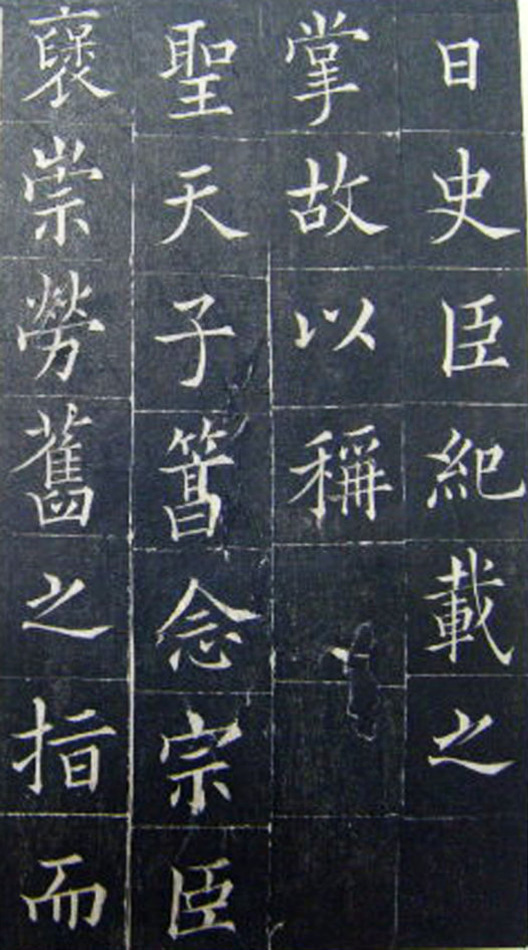 日史臣紀載之
掌故以稱
聖天子䈞念宗臣
襃崇勞舊之指而